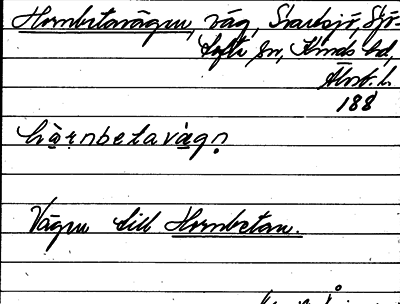 Hornbetavägen, väg, Svartsjö, Sjö-
tofta sn, Kinds hd,
Älvsb. l.
188
hɷ̀rnbetavägn
Vägen till Hornbetan.